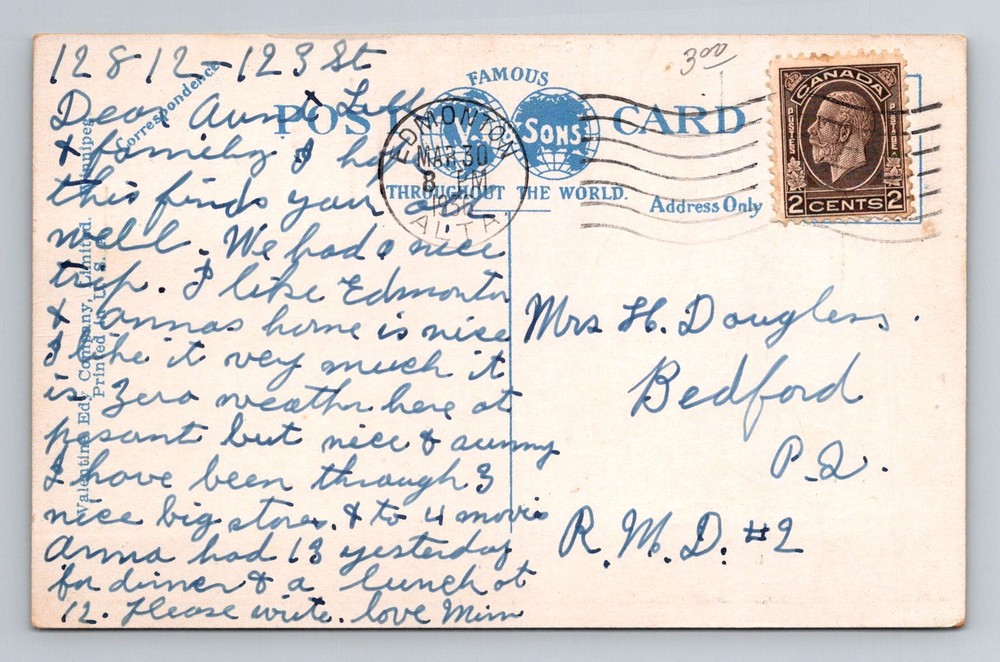 12812-123 St
Dear Aunt Lell
& family I hope
this finds your all
well. We had a nice
trip. I like Edmonton
& Annas home is nice
I like it very much it
is Zero weather here at
presant but nice & sunny
I have been through 3
nice big stores. & to 4 movies
Anna had 13 yesterday
for dinner & a lunch at
12. Please write. love Mim
Correspondence
Valentine Edy Company, Limited. Winnipeg
Printed in U. S. A.
FAMOUS
POST CARD
V. & SONS
THROUGHOUT THE WORLD.
Address Only
EDMONTON
MAR 30
8 PM
ALTA
3.00
CANADA
POSTES
POSTAGE
2 CENTS 2
Mrs H. Douglass.
Bedford
P.Q.
R.M.D. #2